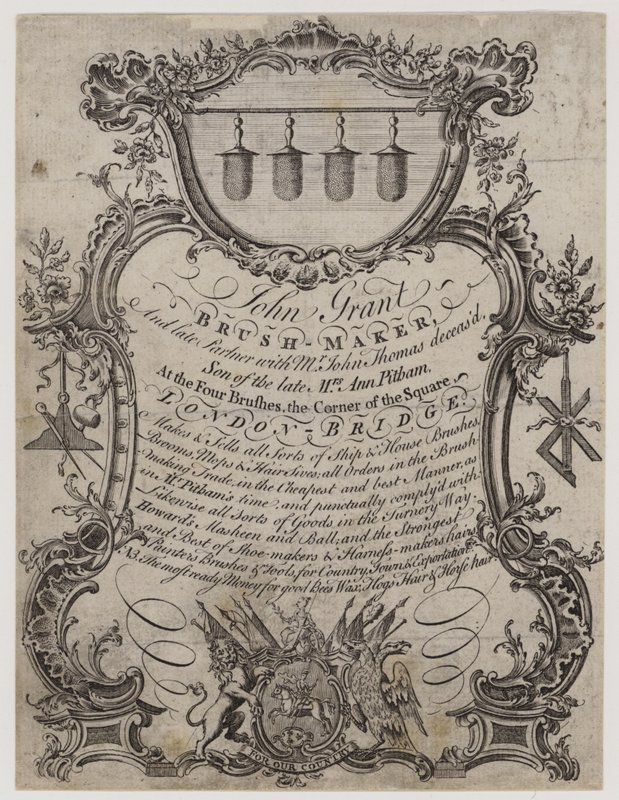 John Grant
BRUSH-MAKER,
And late Partner with Mr. John Thomas deceas'd,
Son of the late Mrs. Ann Pitham,
At the Four Brushes, the Corner of the Square,
LONDON-BRIDGE.
Makes & Sells all Sorts of Ship & House Brushes,
Brooms, Mops & Hair Sives; all Orders in the Brush
making Trade, in the Cheapest and best Manner, as
in Mr. Pitham's time and punctually comply'd with.
Likewise all Sorts of Goods in the Turnery Way.
Howard's Masheen and Ball; and the Strongest
and Best of Shoe-makers & Harness-makers hairs
Painters Brushes & Tools, for Country, Town & Exportation.
NB. The most ready Money for good Bees Wax, Hogs Hair & Horse hair
FOR OUR COUNTRY